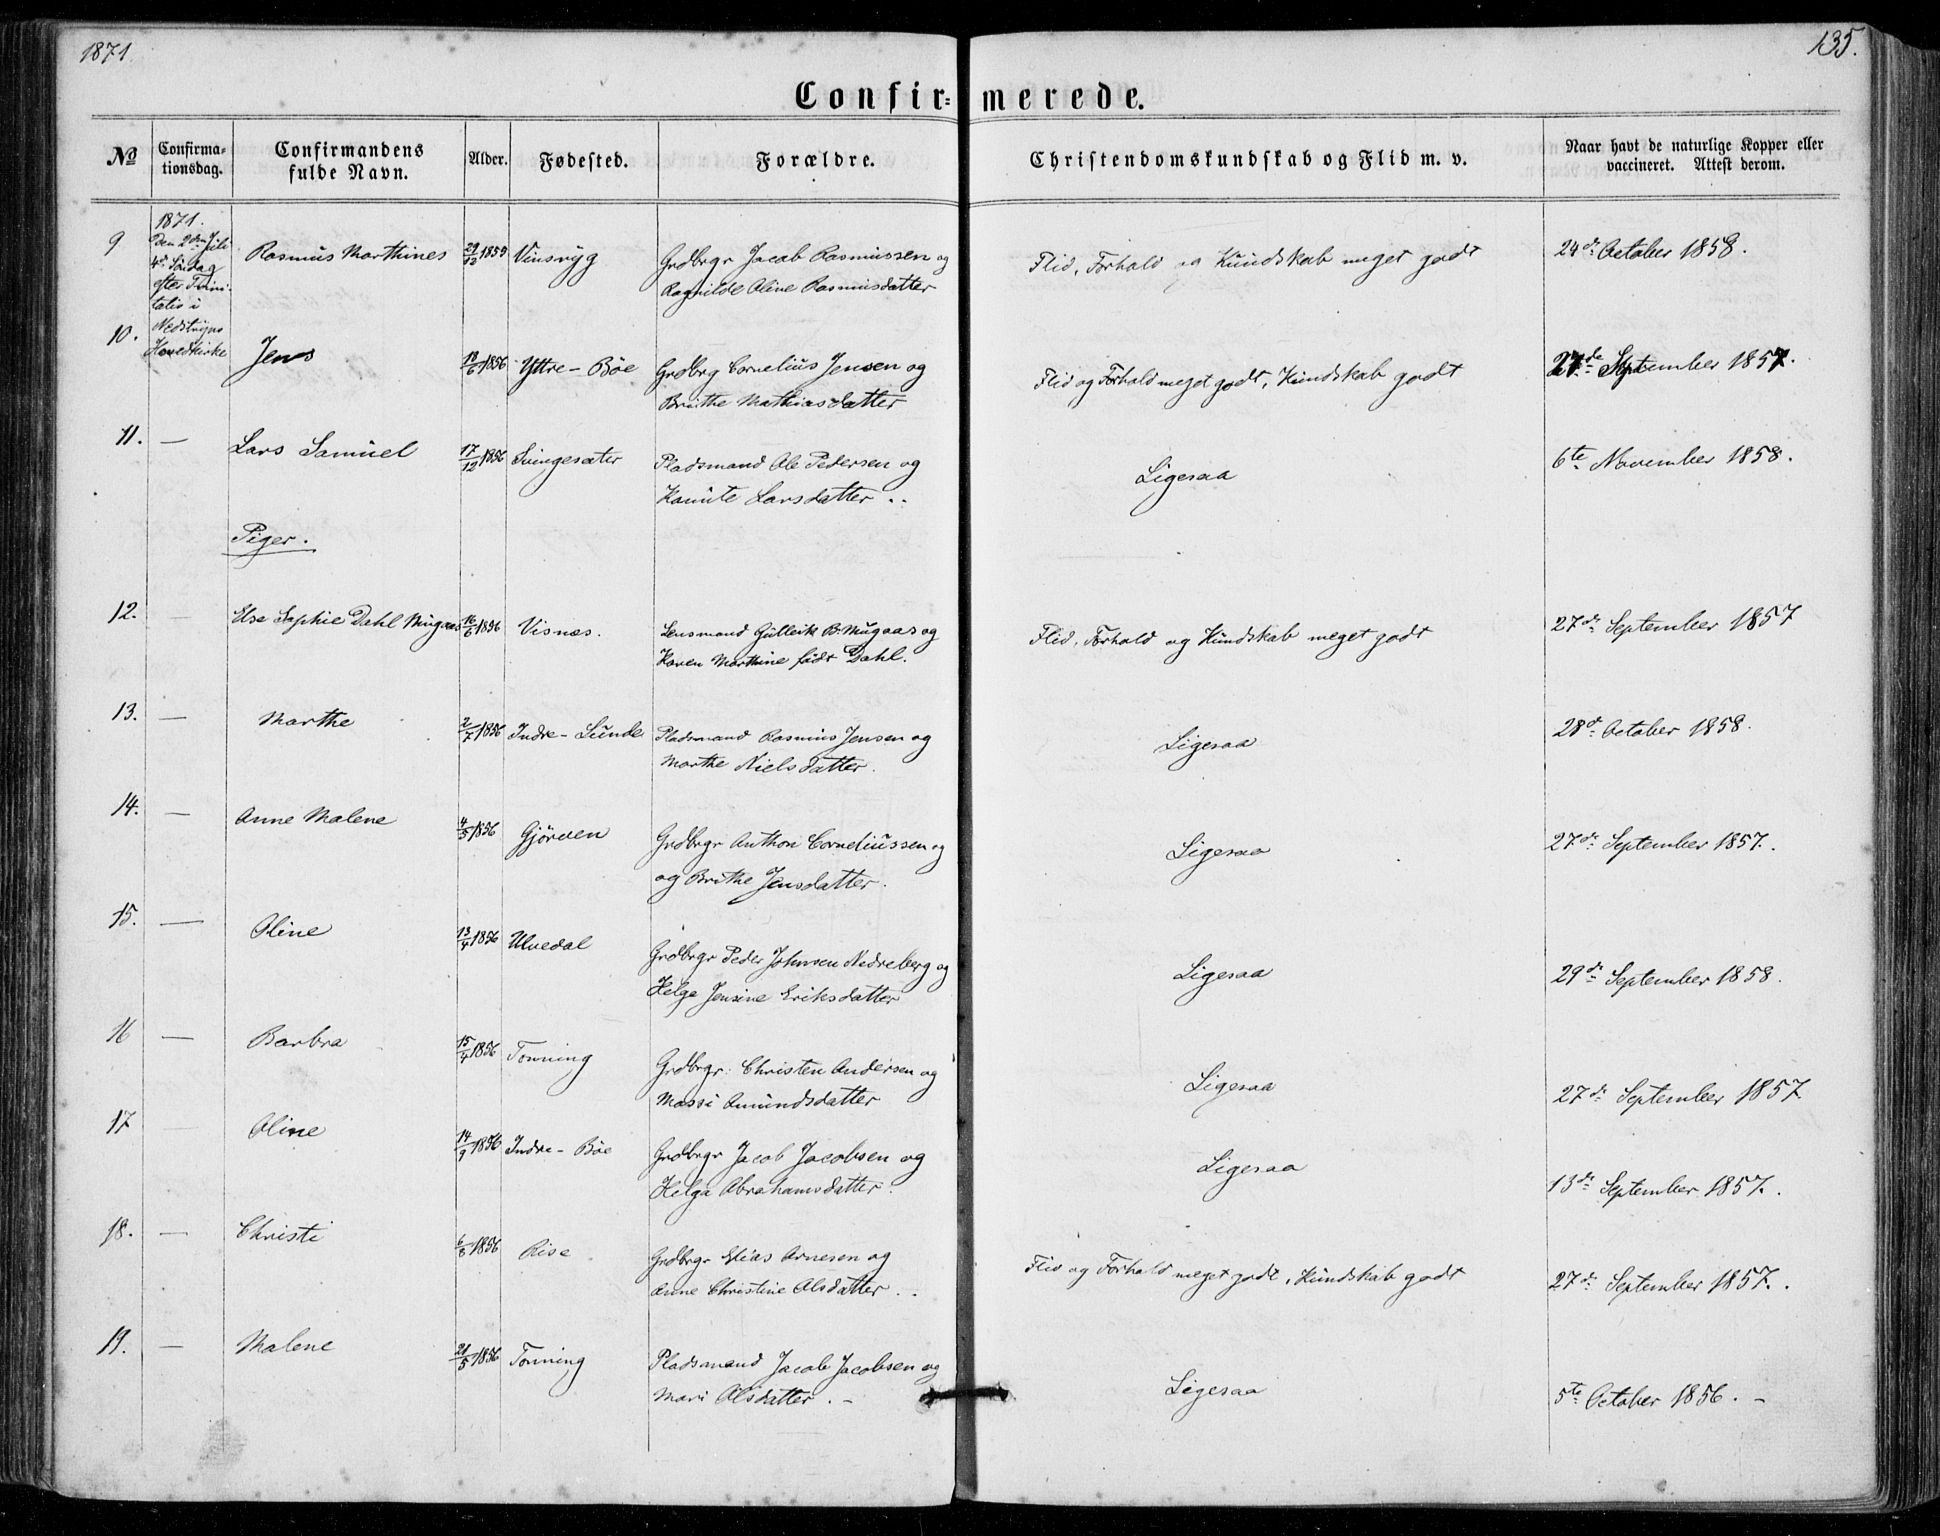 1871.
135.
Confirmerede.
No
Confirmationsdag.
Confirmandens fulde Navn.
Alder.
Fødested.
Forældre.
Christendomskundskab og Flid m. v.
Naar havt de naturlige Kopper eller vaccineret. Attest derom.
9
1871.
Den 2den Juli
4de Söndag
efter Trini-
tatis i
Nedstryns
Hovedkirke
Rasmus Marthines 29/12 1855 Vinsryg Grdbrgr Jacob Rasmussen og
Ragnilde Oline Rasmusdatter
Flid, Forhold og Kundskab meget godt
24de October 1858.
10. Jens 18/6 1856 Yttre-Böe Grdbrg Cornelius Jensen og
Brithe Mathiasdatter
Flid og Forhold meget godt, Kundskab godt
27de September 1857.
11. — Lars Samuel 17/12 1856 Svingesæter Pladsmand Ole Pedersen og
Kanute Larsdatter ..
Ligesaa
6te November 1858.
Piger.
12. — Else Sophie Dahl Mugaas 16/6 1856 Visnæs. Lensmand Gullerik B. Mugaas og
Karen Marthine födt Dahl.
Flid, Forhold og Kundskab meget godt
27de September 1857
13. — Marthe 2/7 1856 Indre-Sunde Pladsmand Rasmus Jensen og
Marthe Nielsdatter.
Ligesaa
28de October 1858.
14. — Anne Malene 4/5 1856 Gjörven Grdbrgr Anthon Corneliussen og
og Brithe Jensdatter.
Ligesaa
27de September 1857.
15. — Oline 13/4 1856 Ulvedal Grdbrgr Peder Johnsen Nedreberg og
Helge Jensine Eriksdatter
Ligesaa
29de September 1858.
16 — Barbra 15/4 1856 Tonning Grdbrgr. Christen Andersen og
Massi Amundsdatter
Ligesaa
27de September 1857
17 — Oline 14/9 1856 Indre-Böe Grdbrgr Jacob Jacobsen og
Helga Abrahamsdatter.
Ligesaa
13de September 1857.
18. — Christi 6/8 1856 Rise Grdbrgr Elias Arnesen og
Anne Christine Olsdatter ..
Flid og Forhold meget godt, Kundskab godt
27de September 1857.
19. — Malene 21/5 1856 Tonning Pladsmand Jacob Jacobsen og
Mari Olsdatter. –
Ligesaa
5te October 1856. –